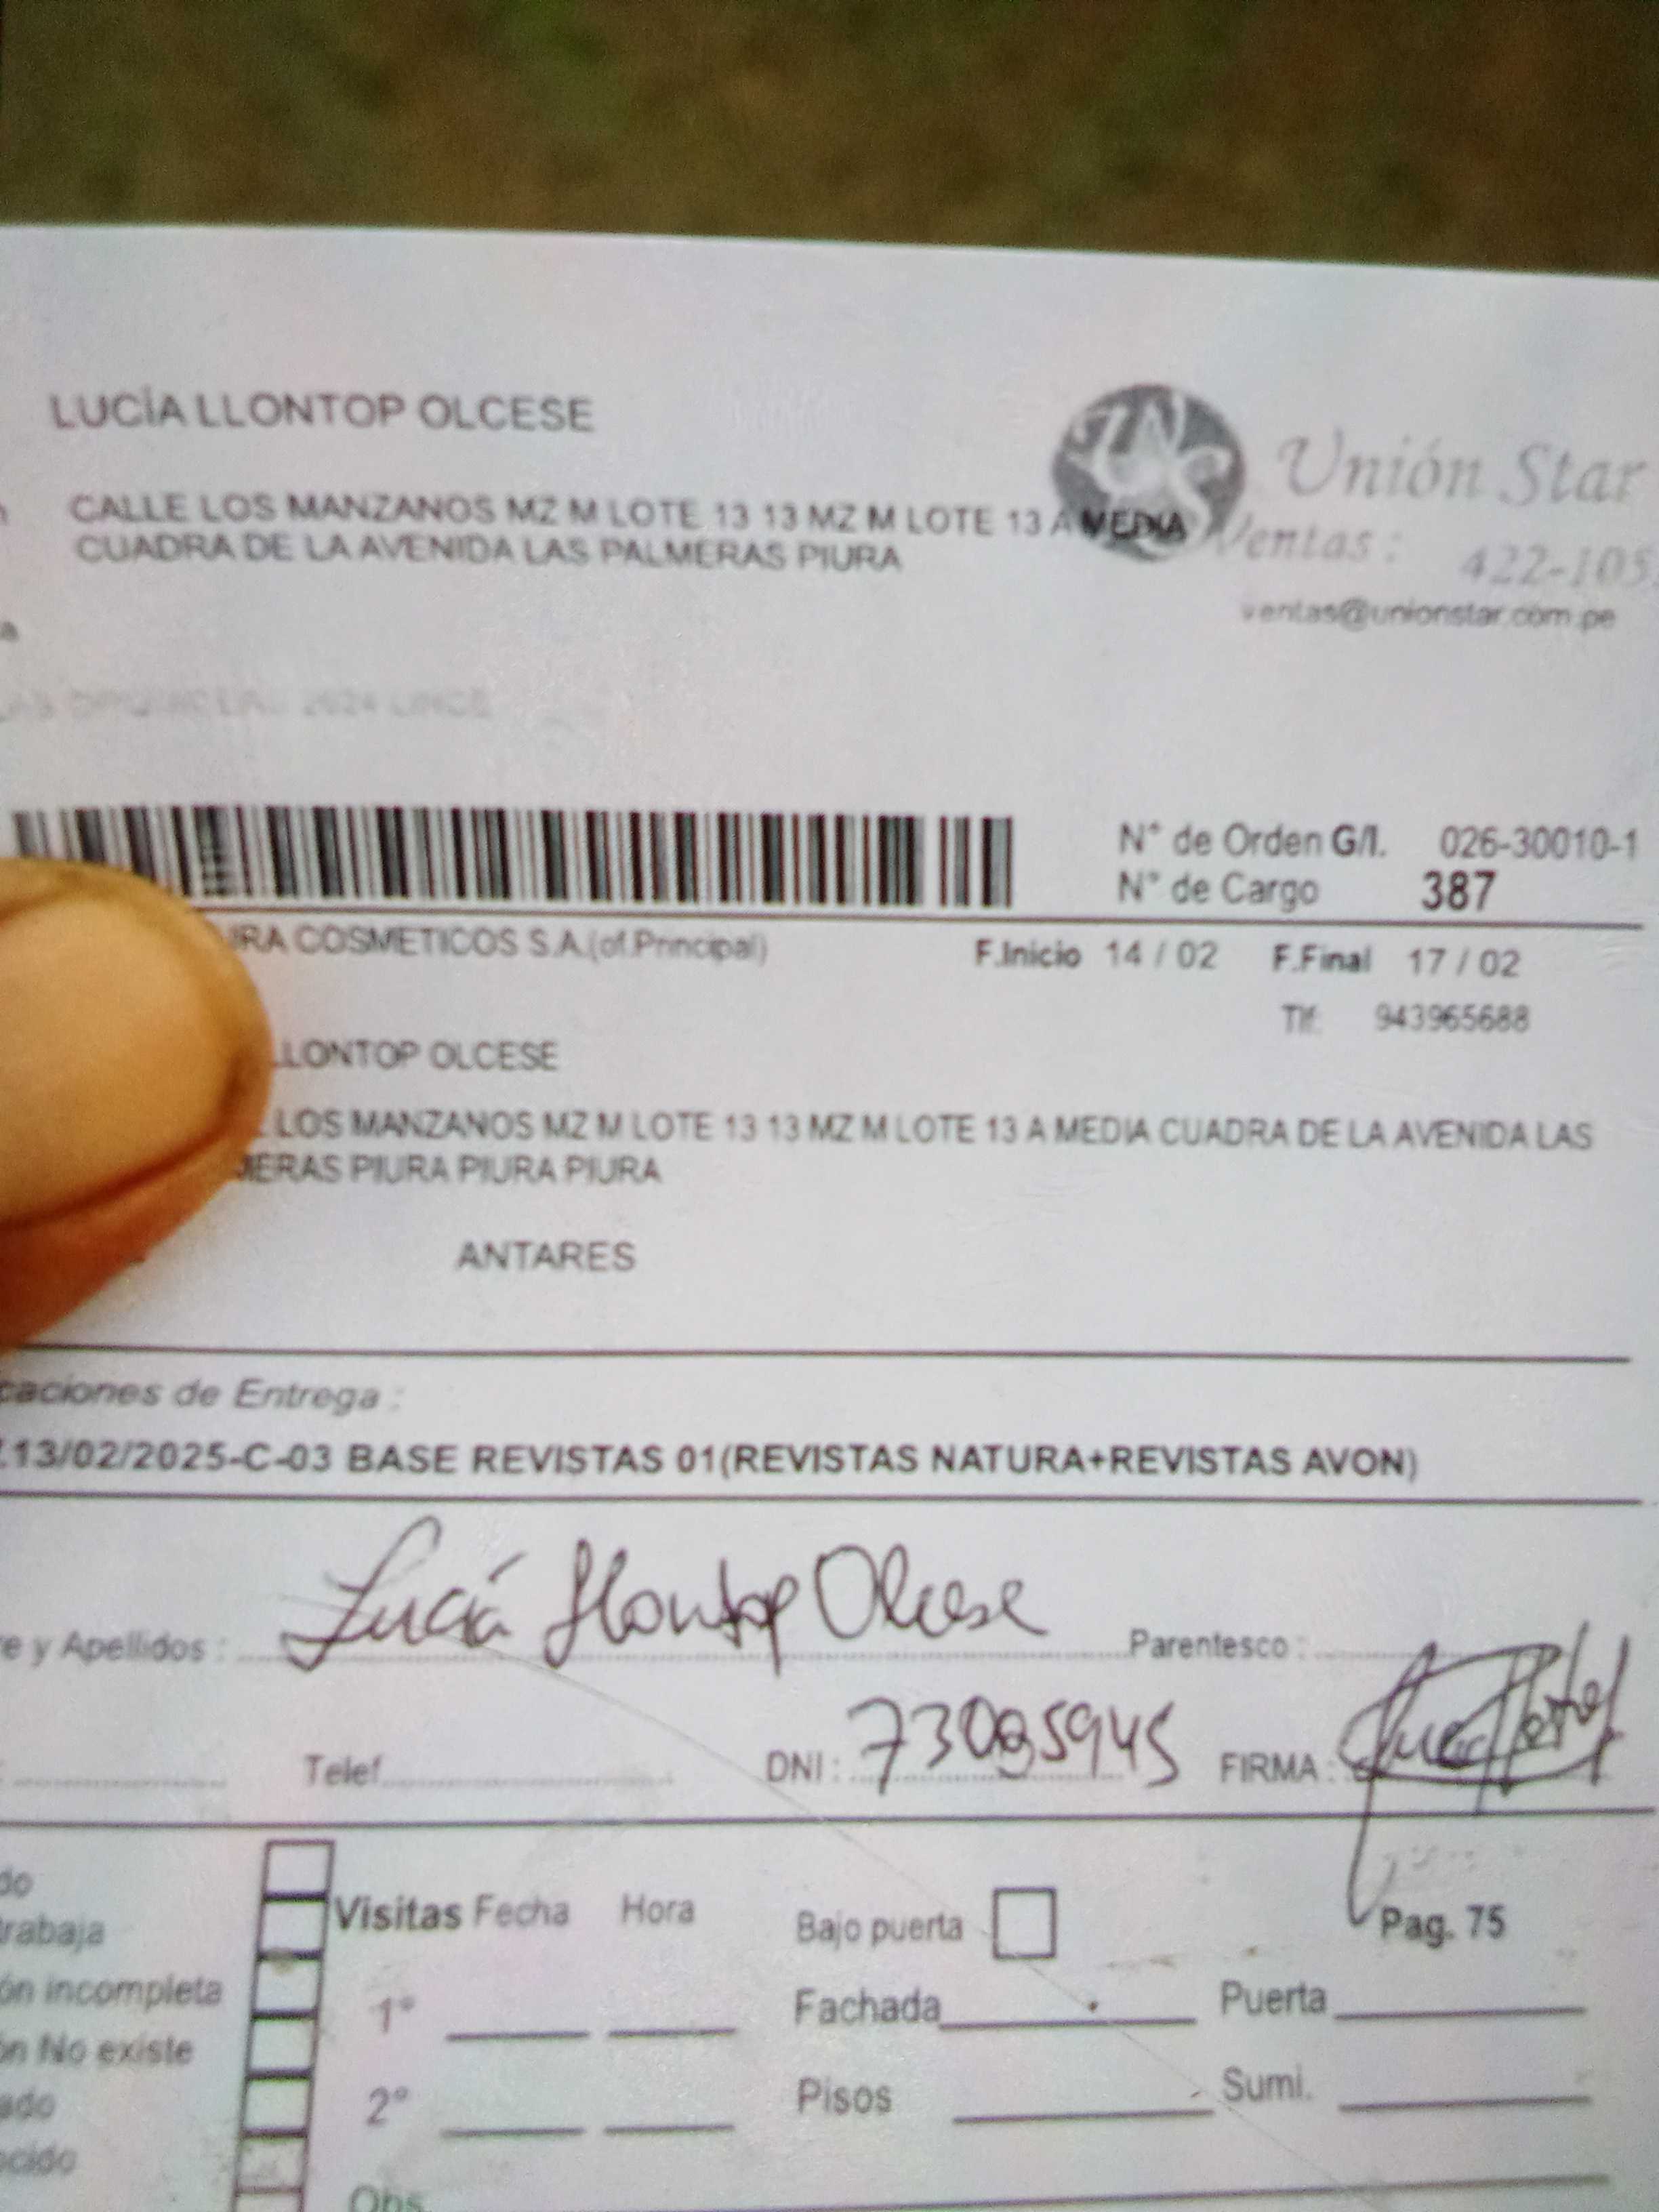 LUCÍA LLONTOP OLCESE
Unión Star
CALLE LOS MANZANOS MZ M LOTE 13 13 MZ M LOTE 13 A MEDIA
CUADRA DE LA AVENIDA LAS PALMERAS PIURA
Ventas : 422-105
ventas@unionstar.com.pe
2024 LINCE
N° de Orden G/I. 026-30010-1
N° de Cargo 387
URA COSMETICOS S.A.(of.Principal) F.Inicio 14 / 02 F.Final 17 / 02
Tlf: 943965688
LLONTOP OLCESE
LOS MANZANOS MZ M LOTE 13 13 MZ M LOTE 13 A MEDIA CUADRA DE LA AVENIDA LAS
MERAS PIURA PIURA PIURA
ANTARES
caciones de Entrega :
.13/02/2025-C-03 BASE REVISTAS 01(REVISTAS NATURA+REVISTAS AVON)
e y Apellidos : Lucía Llontop Olcese Parentesco :
Telef. DNI : FIRMA :
do
trabaja
Visitas Fecha Hora Bajo puerta Pag. 75
ón incompleta
1° Fachada Puerta
ón No existe
ado
2° Pisos Sumi.
ocido
Obs.